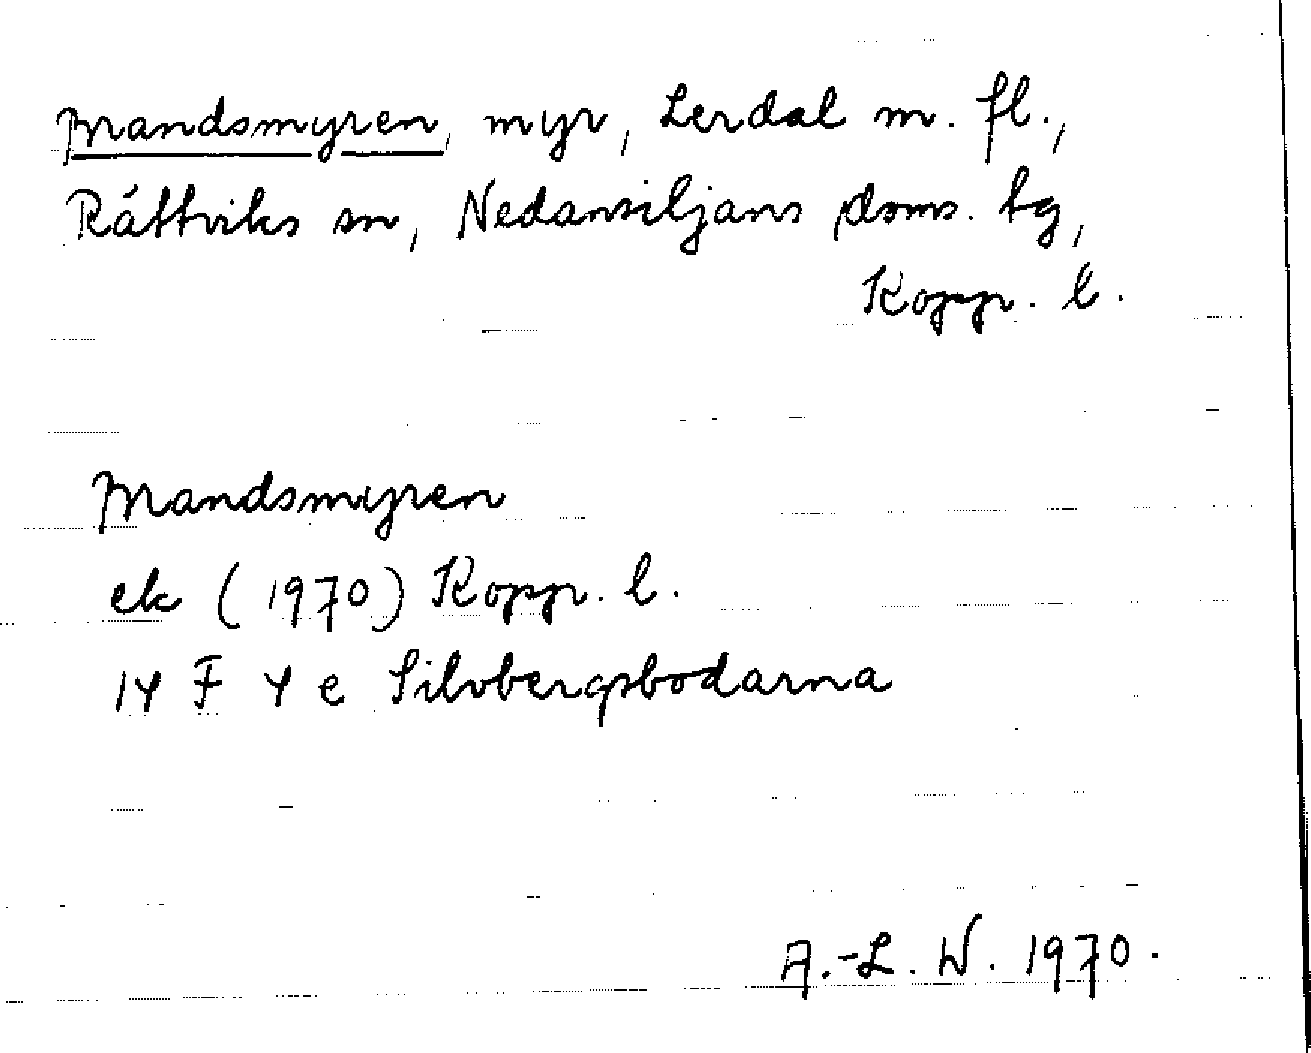 Mandsmyren, myr, Lerdal m. fl.,
Rättviks sn, Nedansiljans doms. tg,
Kopp. l.
Mandsmyren
ek (1970) Kopp. l.
14 F 4 e Silvbergsbodarna
A.-L. W. 1970.